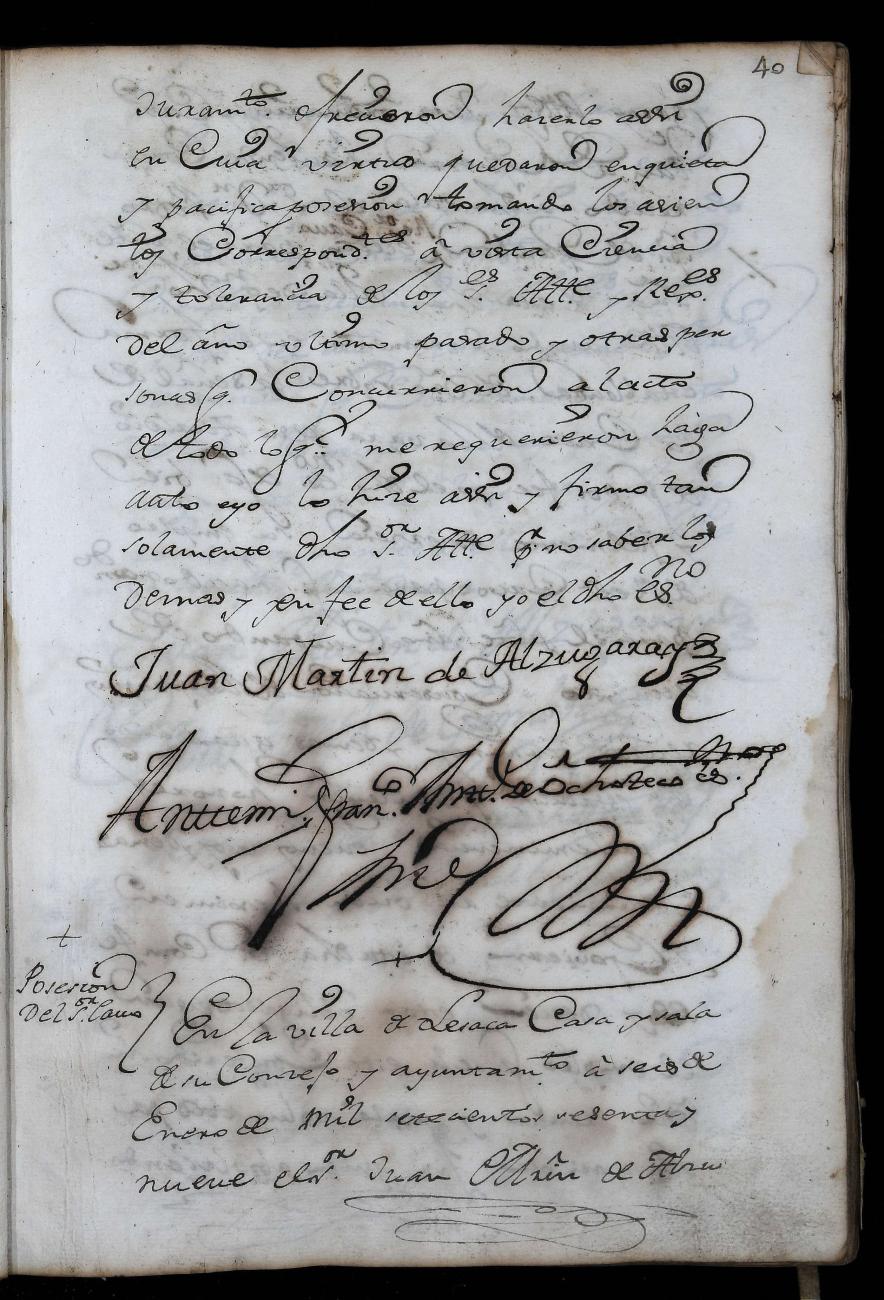 40
Juramto. ofrecieron hacerlo assi
en Cuia virtud quedaron enquieta
y pacifica posesion tomando los asien
tos Correspondtes â vista Ciencia
y tolerancia de los Ses. Alle y Rexes.
Del año vltimo pasado y otras per
sonas q. Concurrieron al acto
de todo lo qe. me requerieron haga
auto eyo lo hize assi y firmo tan
solamente dho Sor. Alle pr. no saber los
Demas y en fee de ello yo el dho esno
Juan Martin de Alzugaray
Antemi Frano. Anto. de Ochoteco esno.
+
Posesion
Del Sor. Cauo
En la villa de Lesaca Casa y sala
de su Consejo y ayuntamto â seis de
Enero de Mil setecientos sesenta y
nueue el Sor. Juan Mrñ de Alzu